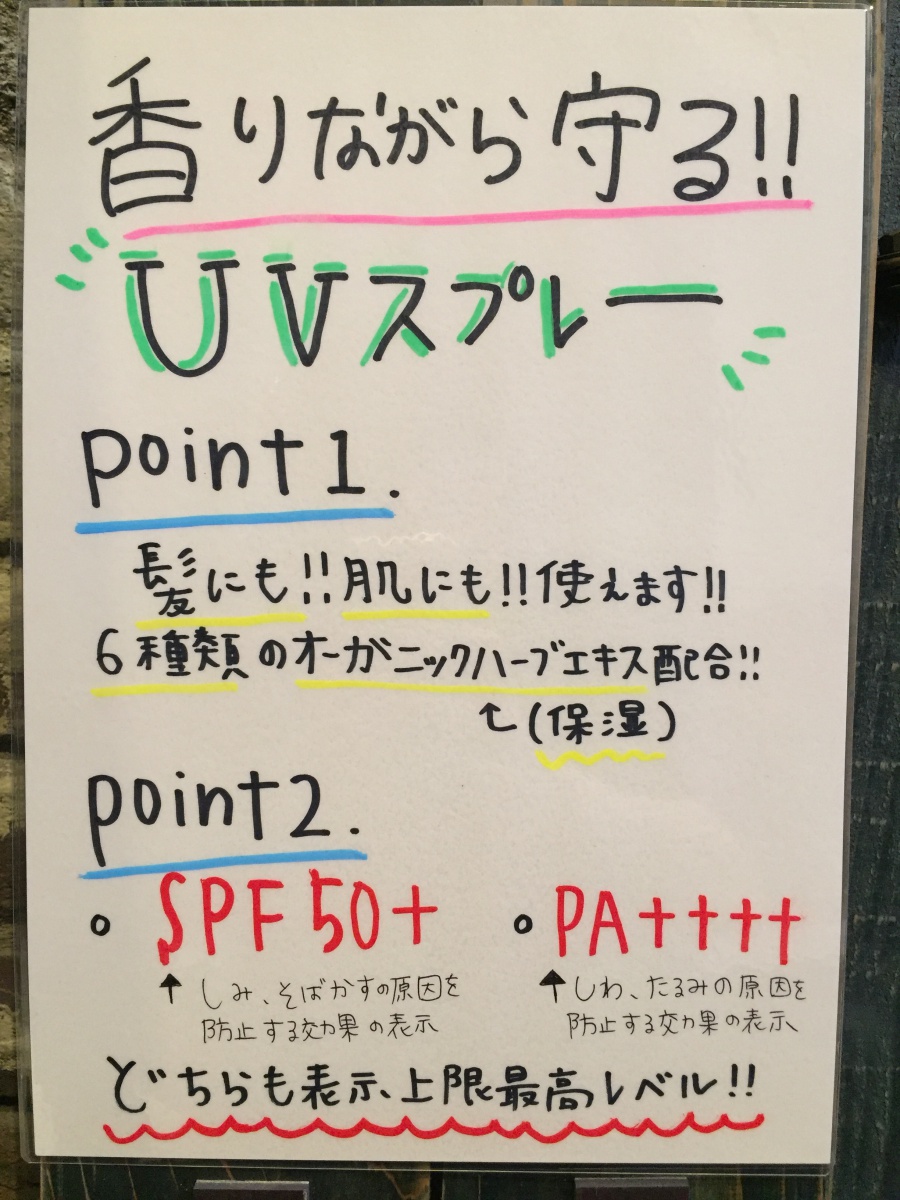 香りながら守る!!
UVスプレー
point1.
髪にも!!肌にも!!使えます!!
6種類のオーガニックハーブエキス配合!!
(保湿)
point2.
SPF50+
PA++++
しみ、そばかすの原因を
防止する効果の表示
しわ、たるみの原因を
防止する効果の表示
どちらも表示、上限最高レベル!!